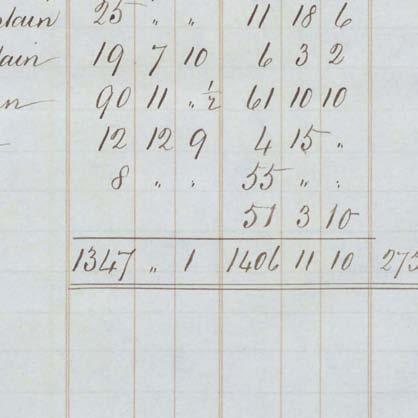 plain 25 " " 11 18 6
lain 19 7 10 6 3 2
n 90 11 " ½ 61 10 10
12 12 9 4 15 "
8 " " 55 " "
51 3 10
1347 " 1 1406 11 10 273